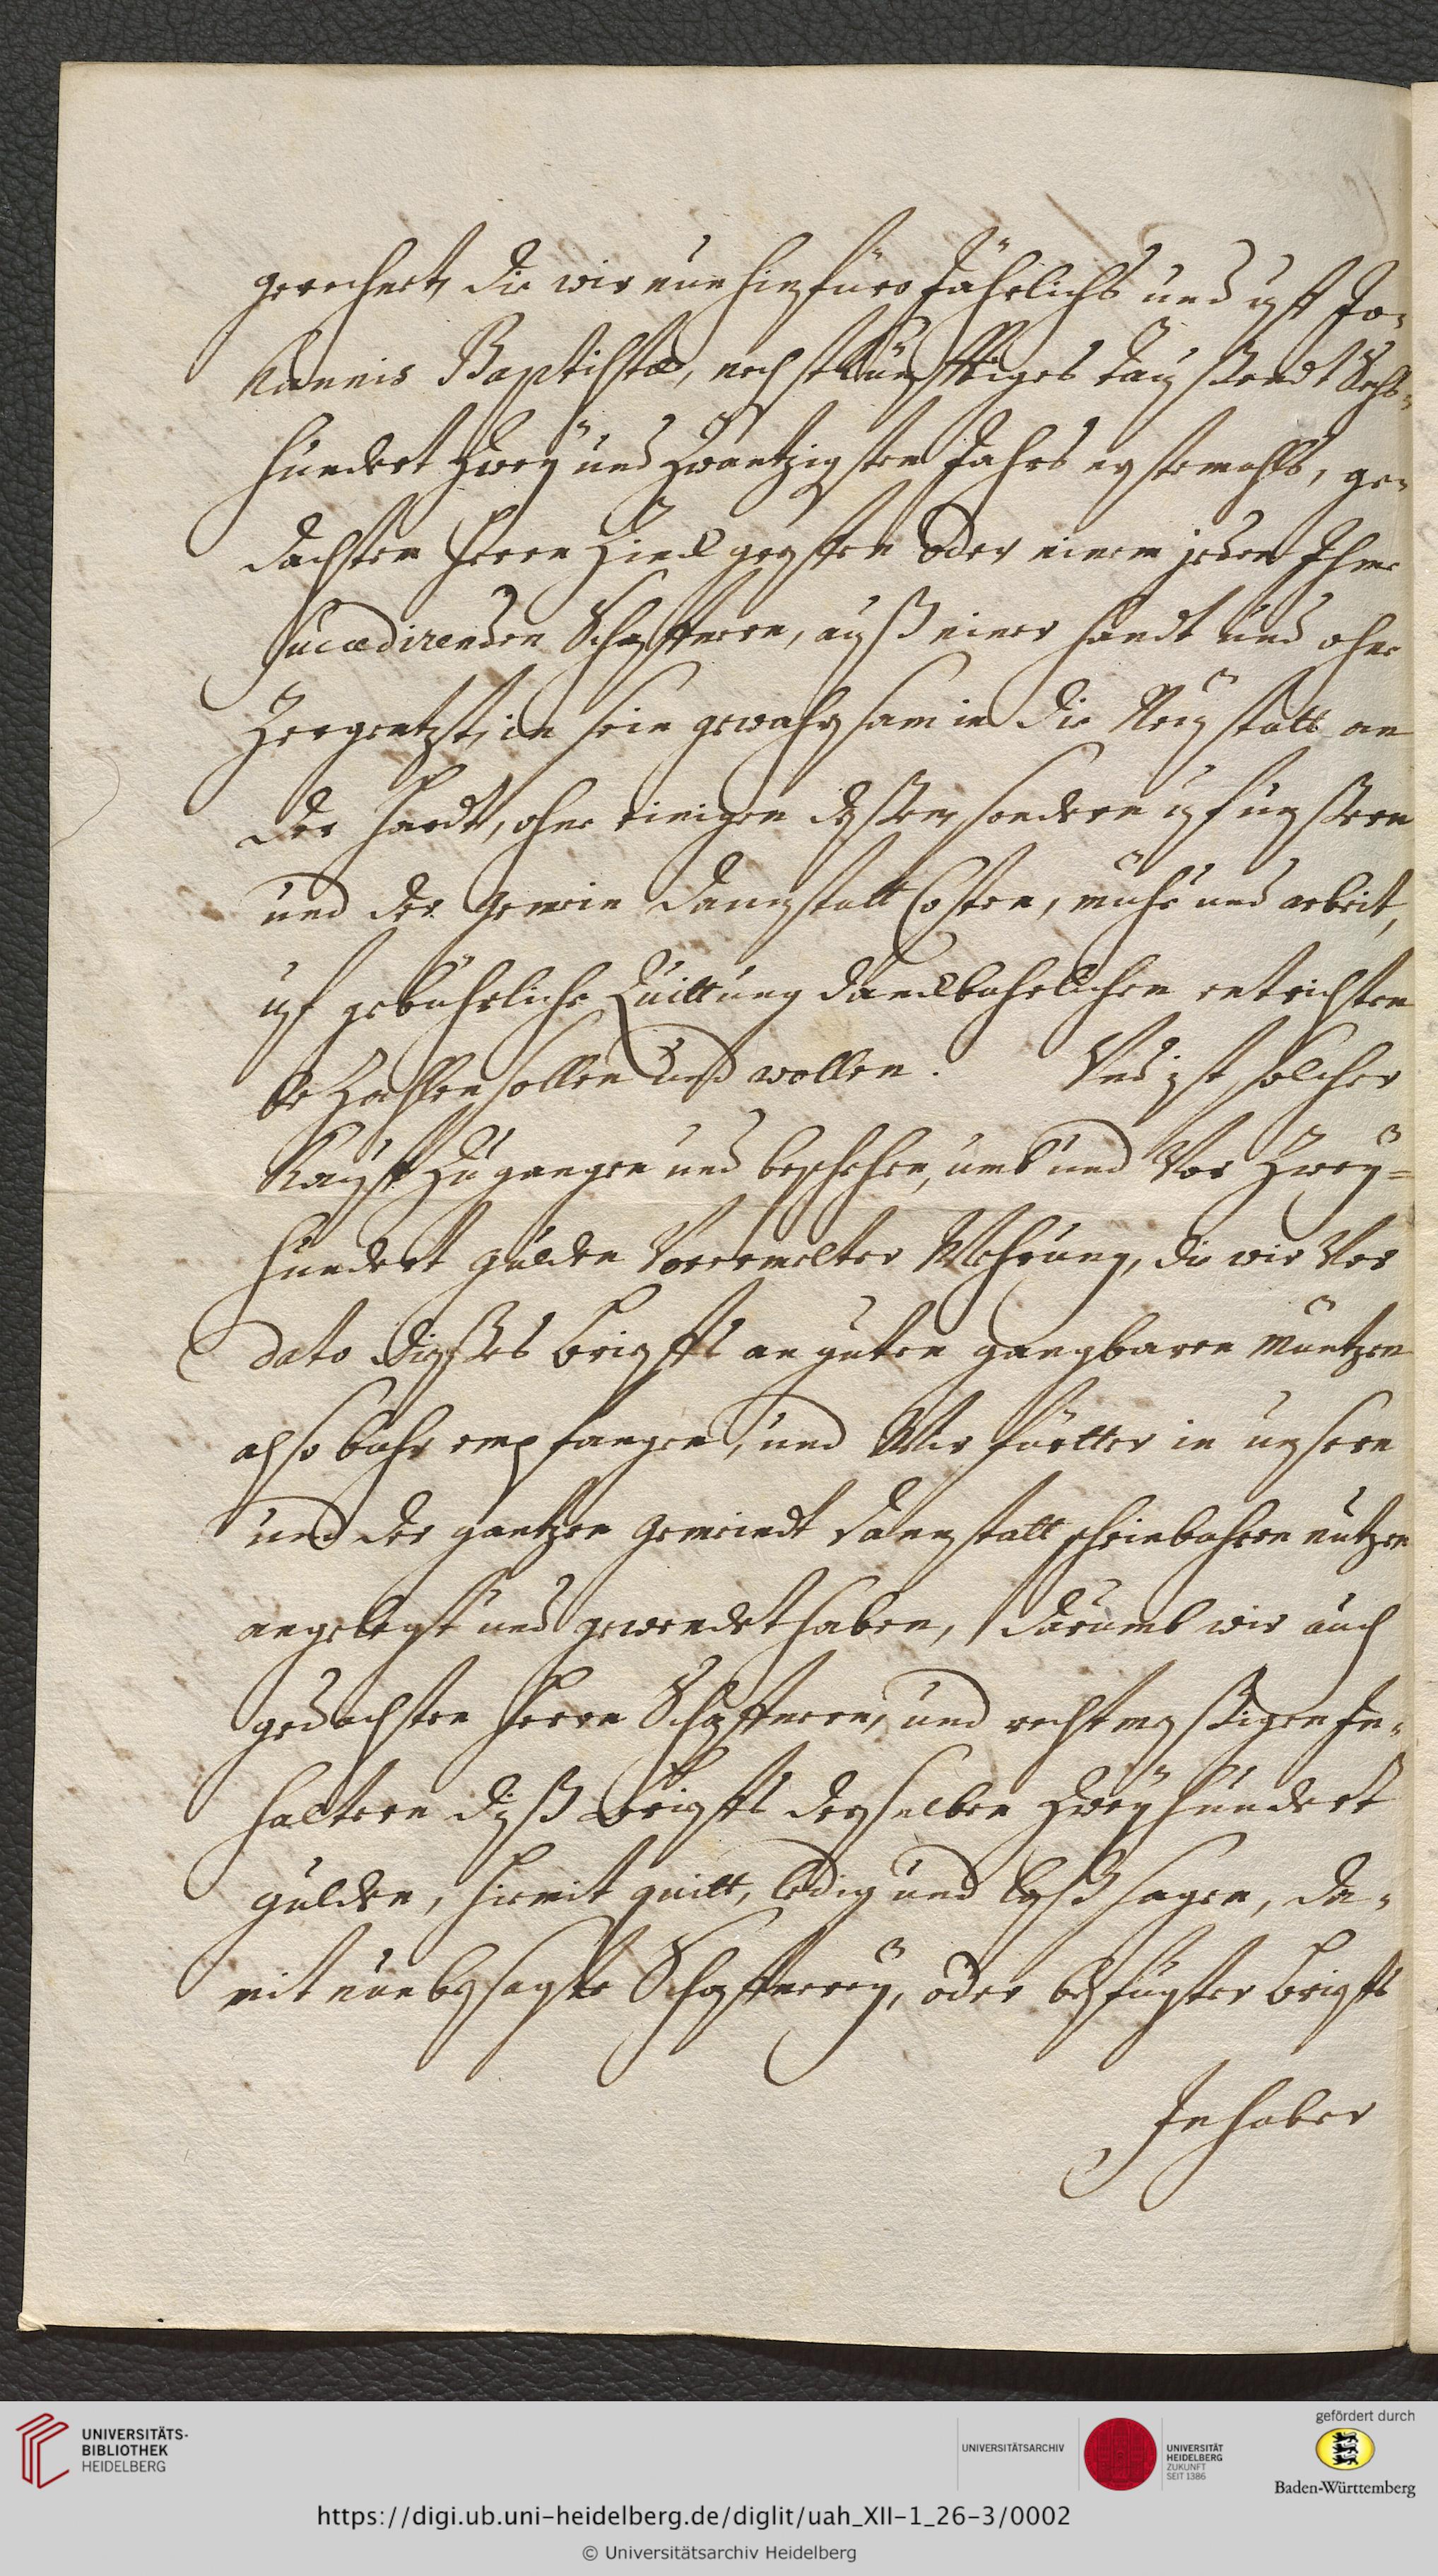 gerechnet, die wir nun hinfüro Jährlichs und uff Jo-
hannis Baptistæ, nechstkünfftiges taußendt Sechs-
hundert Zwey und Zwantzigsten Jahrs erstemahls, ge-
dachten Herrn oder einem jeden Ihme
succedirenden Schaffnern, auß einer handt und ohne
Zergentzt, in sein gewahrsam in die Neustatt an
der Hardt, ohne einigen deßen, sondern uf unßern
und der Gemein Dannstatt Costen, mühe und arbeit,
uf gebührliche Quittung danckbahrlichen entrichten
bezahlen sollen und wollen. Und ist solcher
Kauff Zugangen und beschehen, umb und vor Zwey-
hundert gulden vorermelter Wehrung, die wir vor
dato dießes brieffs an guten gangbaren müntzen
also bahr empfangen, und Wir fürtter in unsern
und der gantzen gemeindt Dannstatt scheinbahren nutzen
angelegt und gewendet haben, darumb wir auch
gedachten Herrn Schaffnern, und rechtmeßigen In-
haltern diß Brieffs derselben Zweyhundert
gulden, hiemit quitt, ledig und loß sagen, da-
mit nun besagte Schaffnerey, oder befugter brieffs
Inhaber
UNIVERSITÄTS-
BIBLIOTHEK
HEIDELBERG
UNIVERSITÄTSARCHIV
UNIVERSITÄT
HEIDELBERG
ZUKUNFT
SEIT 1386
gefördert durch
Baden-Württemberg
https://digi.ub.uni-heidelberg.de/diglit/uah_XII-1_26-3/0002
© Universitätsarchiv Heidelberg